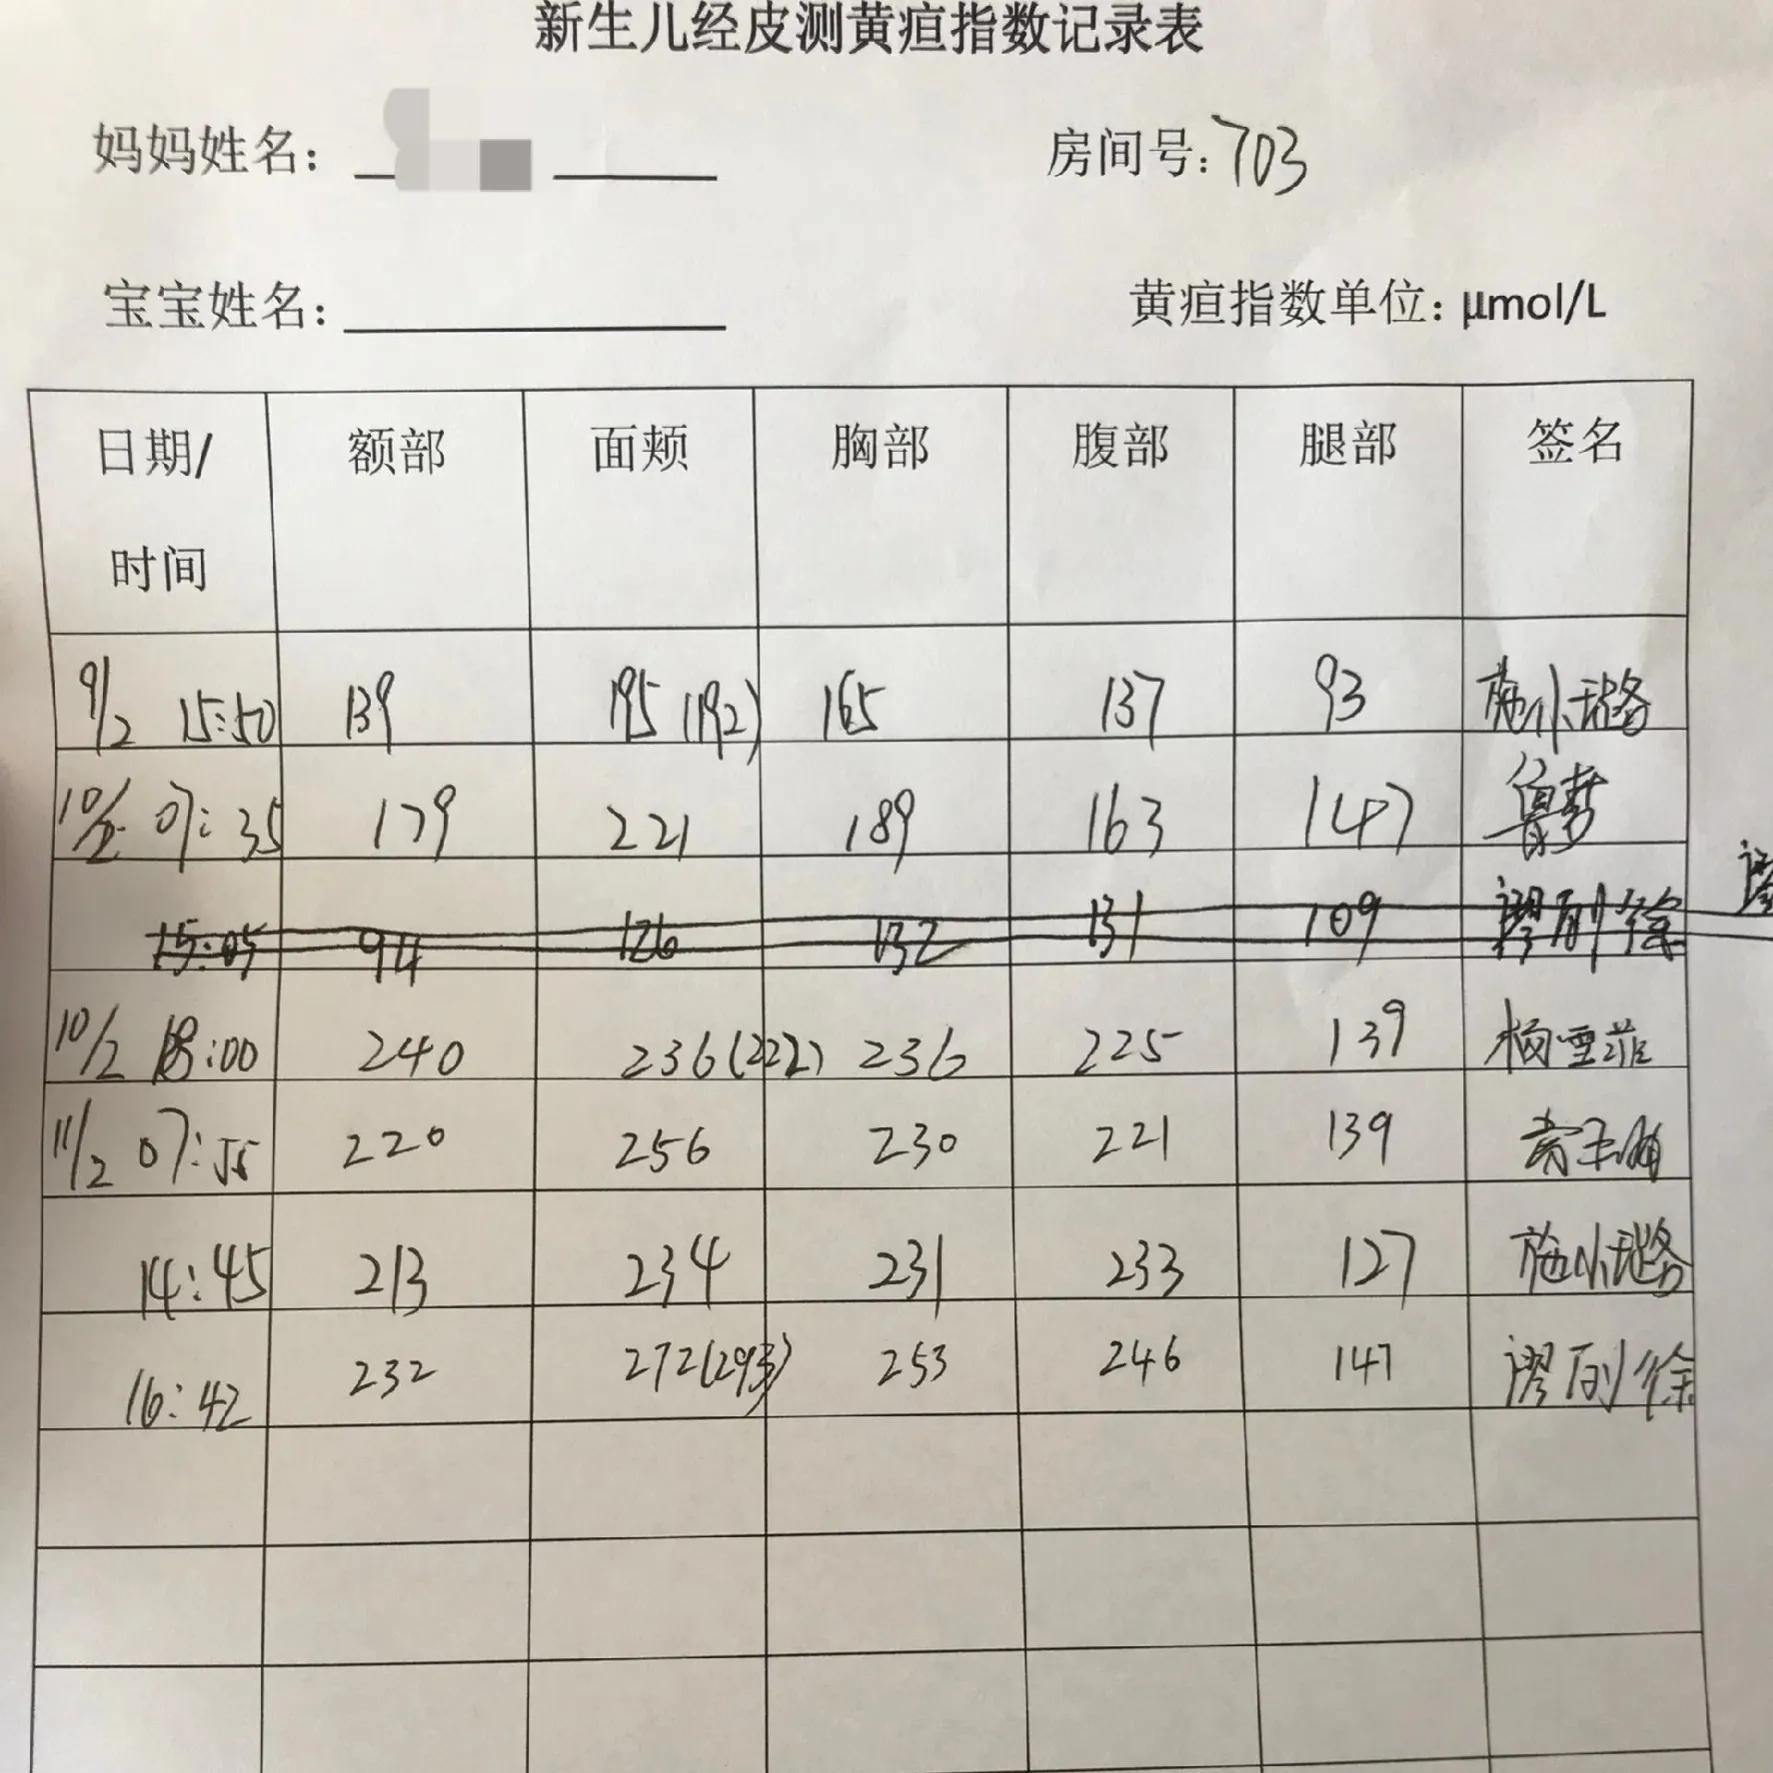 新生儿经皮测黄疸指数记录表
妈妈姓名： 房间号：703
宝宝姓名： 黄疸指数单位：μmol/L
日期/ 额部 面颊 胸部 腹部 腿部 签名
时间
9/2 15:50 139 195(192) 165 137 93 施小璐
10/2 07:35 179 221 189 163 147
15:05 94 126 132 131 109
10/2 18:00 240 236(222) 236 225 139 杨雪菲
11/2 07:55 220 256 230 221 139
14:45 213 234 231 233 127 施小璐
16:42 232 272(293) 253 246 147